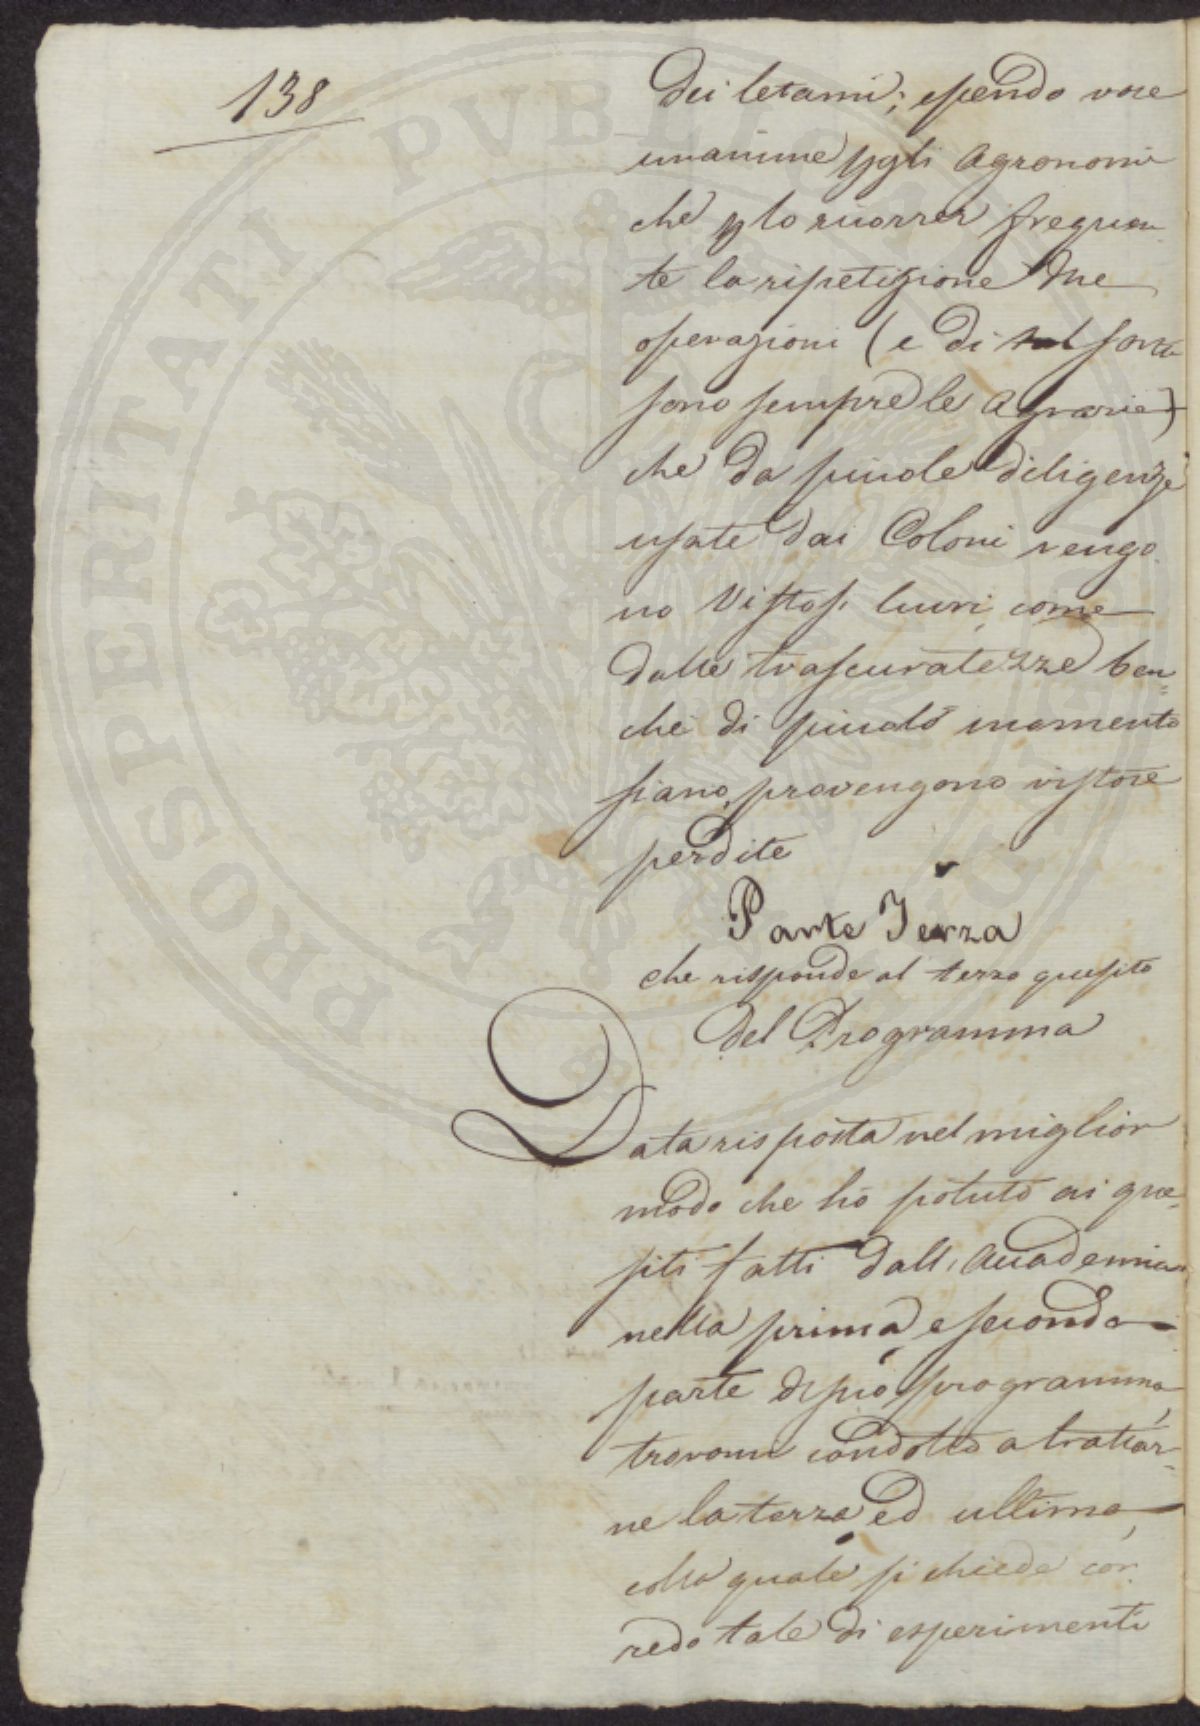 138
dei letami; essendo voce
unanime pgli Agronomi
che plo ricorrer frequen
te la ripetizione
operazioni (e di tal sorta
sono sempre le Agrarie)
che da picole diligenze
usate dai Coloni vengo
no Vistosi lucri, come
dalle trascuratezze ben=
chè di picolo momento
siano, provengono vistose
perdite
Parte Terza
che risponde al terzo quesito
del Programma
Data risposta nel miglior
modo che hò potuto ai que=
siti fatti dall'Accademia
nella prima e seconda
parte programma,
trovomi condotto a trattar=
ne la terza ed ultima,
colla quale si chiede cor
redo tale di esperimenti
PROSPERITATI PUBLICAE